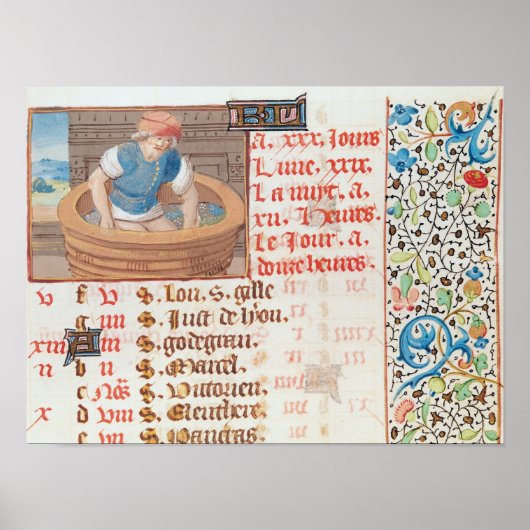 a. xxx. Jours
Lune. xxix
La nuyt. a
xii. heures.
Le Jour. a.
douze heures.
v f v S. lou. S. gille
g iiii S. Just de lyon.
xiii A iii S. godegran.
ii b ii S. Marcel.
c Noñ S. Victorien.
x d viii S. Eleuthere.
e vii S. Pancras.